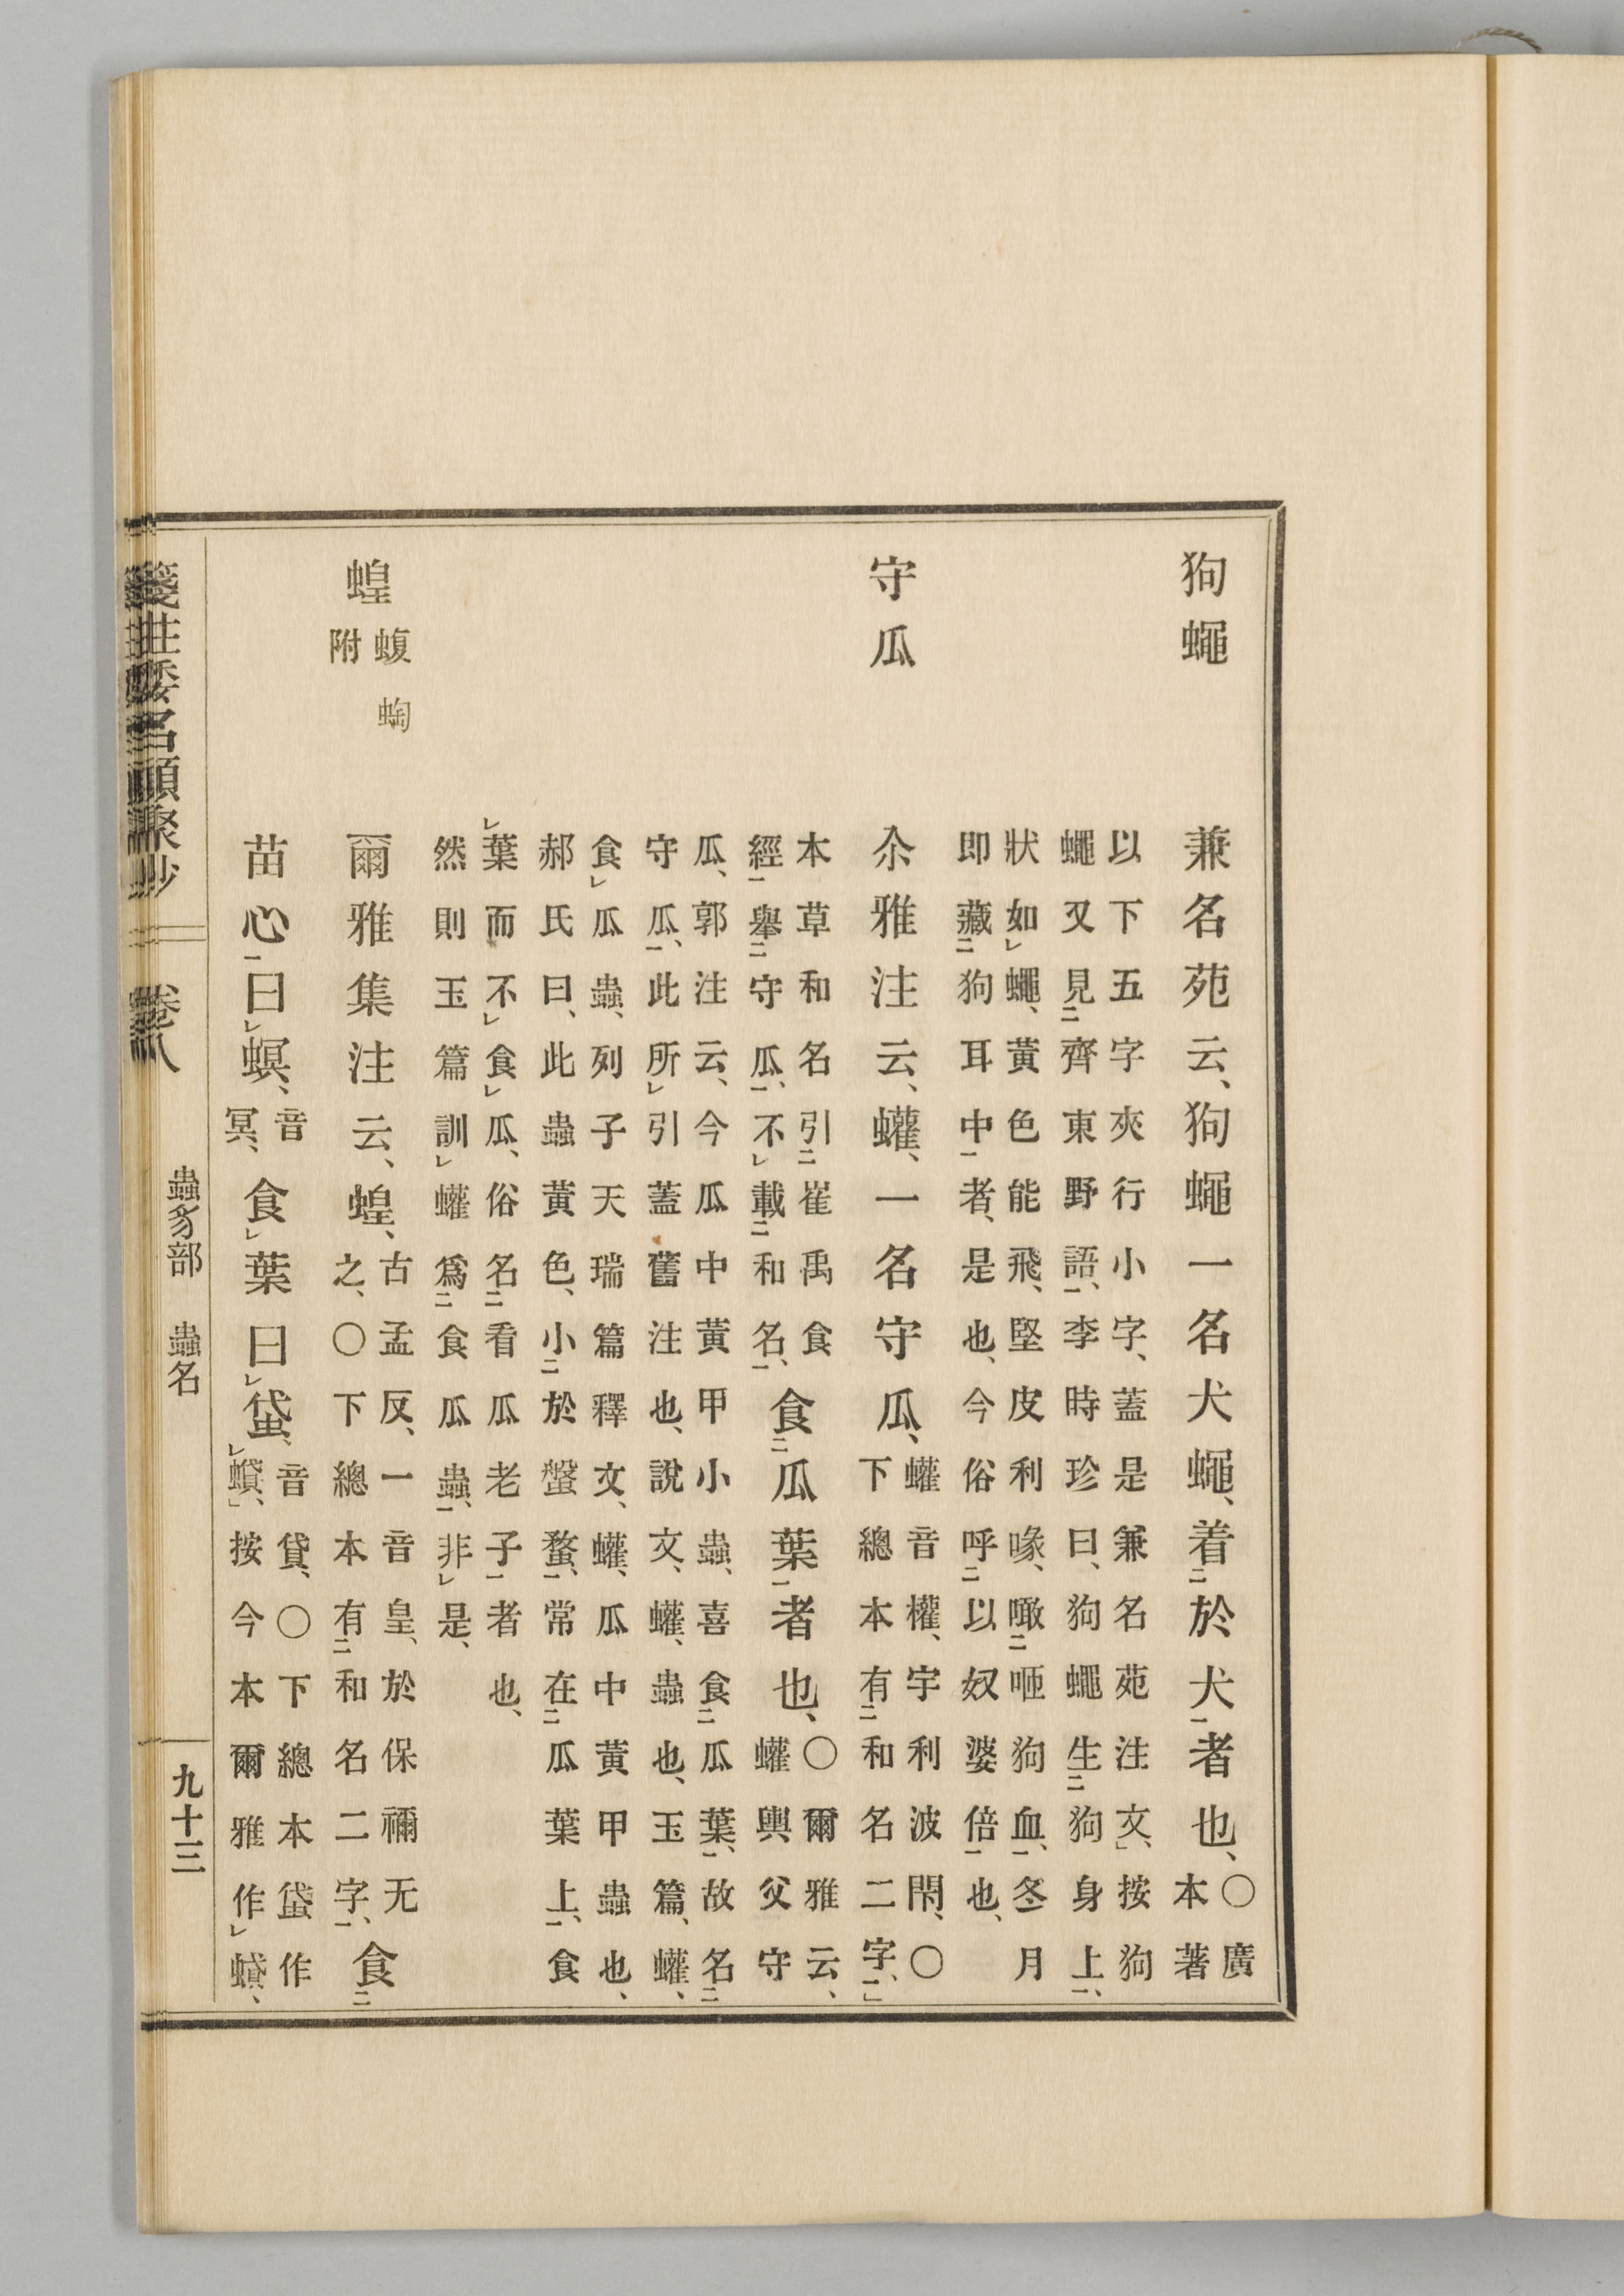 狗蠅　兼名苑云、狗蠅一名犬蠅、着二於犬一者也、○廣
本著
以下五字夾行小字、蓋是兼名苑注文、」按狗
蠅又見二齊東野語一、李時珍曰、狗蠅生二狗身上一、
狀如レ蠅、黃色能飛、堅皮利喙、噉二咂狗血一、冬月
即藏二狗耳中一者、是也、今俗呼二以奴婆倍一也、
守瓜　尒雅注云、蠸、一名守瓜、蠸音權、宇利波閇、○
下總本有二和名二字一、」
本草和名引二崔禹食
經一擧二守瓜一、不レ載二和名一、
食二瓜葉一者也、○爾雅云、
蠸輿父守
瓜、郭注云、今瓜中黃甲小蟲、喜食二瓜葉一、故名二
守瓜一、此所レ引蓋舊注也、說文、蠸、蟲也、玉篇、蠸、
食レ瓜蟲、列子天瑞篇釋文、蠸、瓜中黃甲蟲也、
郝氏曰、此蟲黃色、小二於螌蝥一、常在二瓜葉上一、食
レ葉而不レ食レ瓜、俗名二看瓜老子一者也、
然則玉篇訓レ蠸爲二食瓜蟲一、非レ是、
蝗　蝮蜪
附
爾雅集注云、蝗、古孟反、一音皇、於保禰无
之、○下總本有二和名二字一、
食二
苗心一曰レ螟、音
冥、
食レ葉曰レ音貸、○下總本作
レ蟘、」按今本爾雅作レ蟘、
箋註倭名類聚抄　卷八　蟲豸部　蟲名　九十三